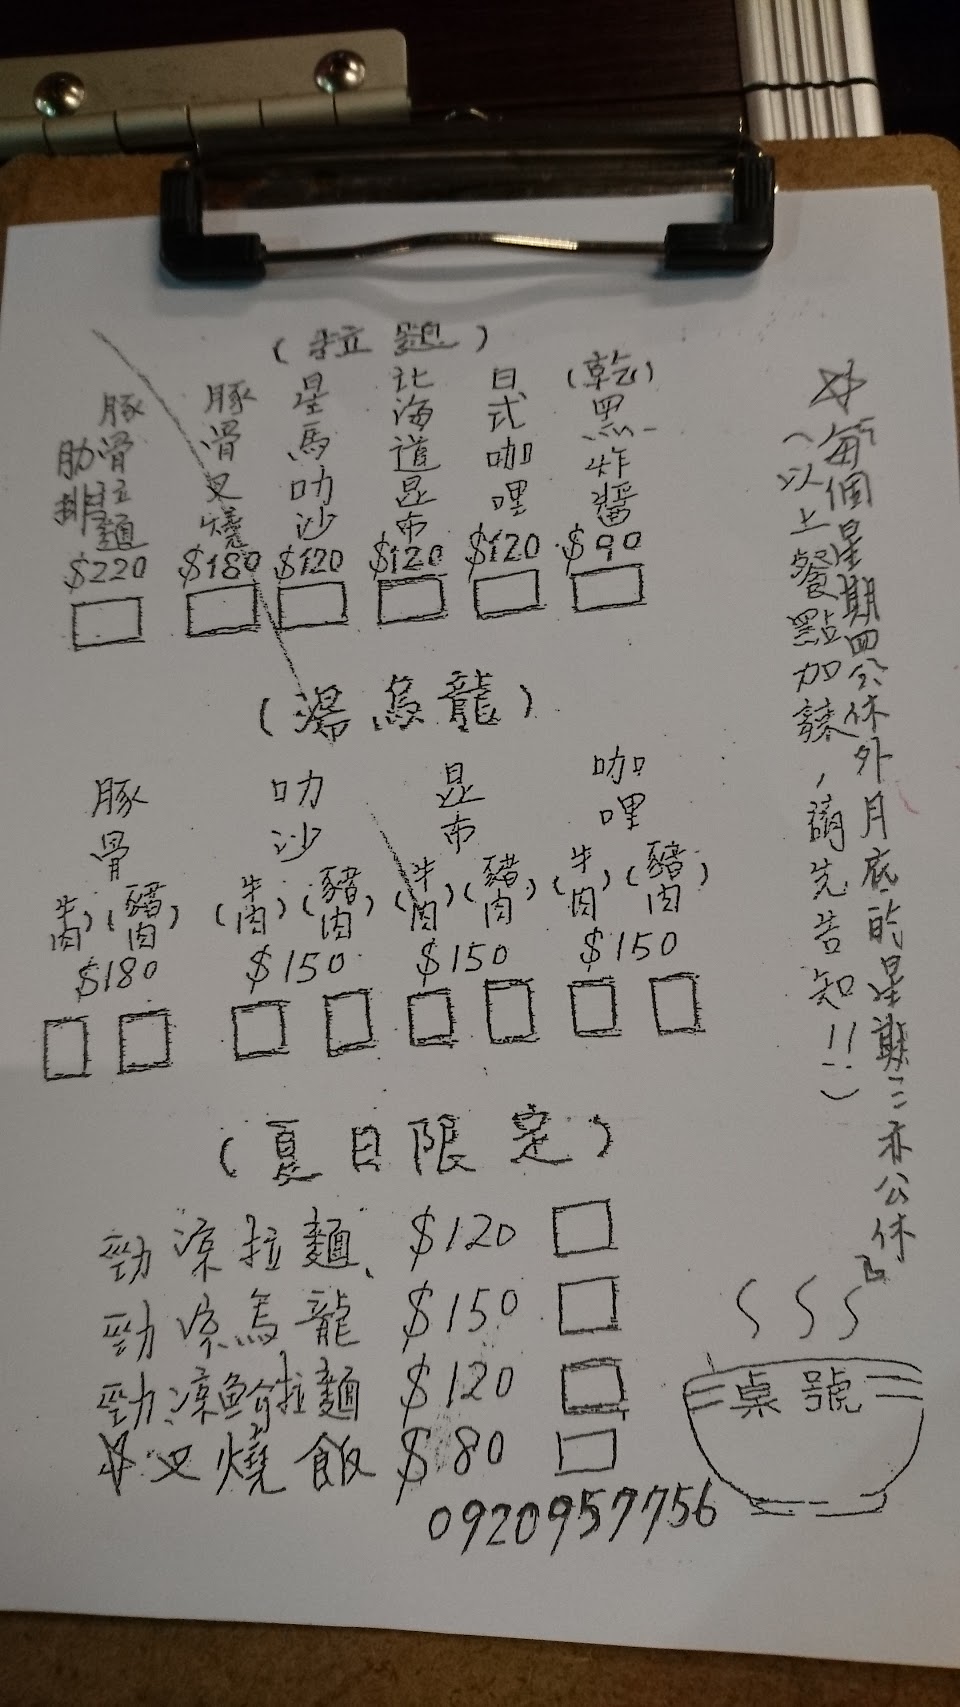 (拉麵)
豚骨肋排拉麵
$220
豚骨叉燒
$180
星馬叻沙
$120
北海道昆布
$120
日式咖哩
$120
(乾)黑炸醬
$90
(湯烏龍)
豚骨
(牛肉)(豬肉)
$180
叻沙
(牛肉)(豬肉)
$150
昆布
(牛肉)(豬肉)
$150
咖哩
(牛肉)(豬肉)
$150
(夏日限定)
勁涼拉麵 $120
勁涼烏龍 $150
勁涼鮪拉麵 $120
☆叉燒飯 $80
0920957756
☆『每個星期四公休外月底的星期三亦公休』
(以上餐點加辣,請先告知!!)
桌號